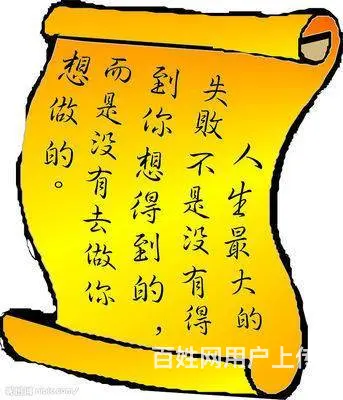 人生最大的
失敗不是没有得
到你想得到的，
而是没有去做你
想做的。
百姓网用户上传
昵图网 nipic.com/